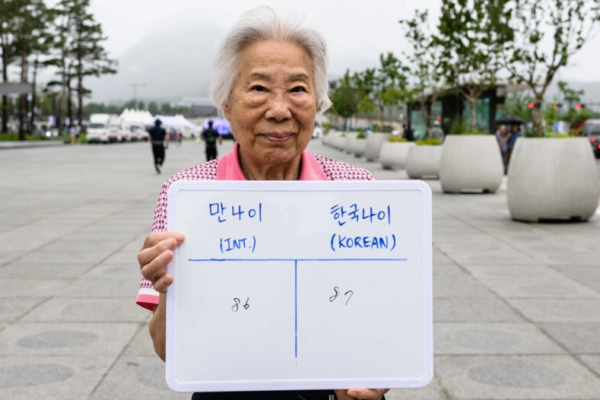 만나이 한국나이
(INT.) (KOREAN)
86 87